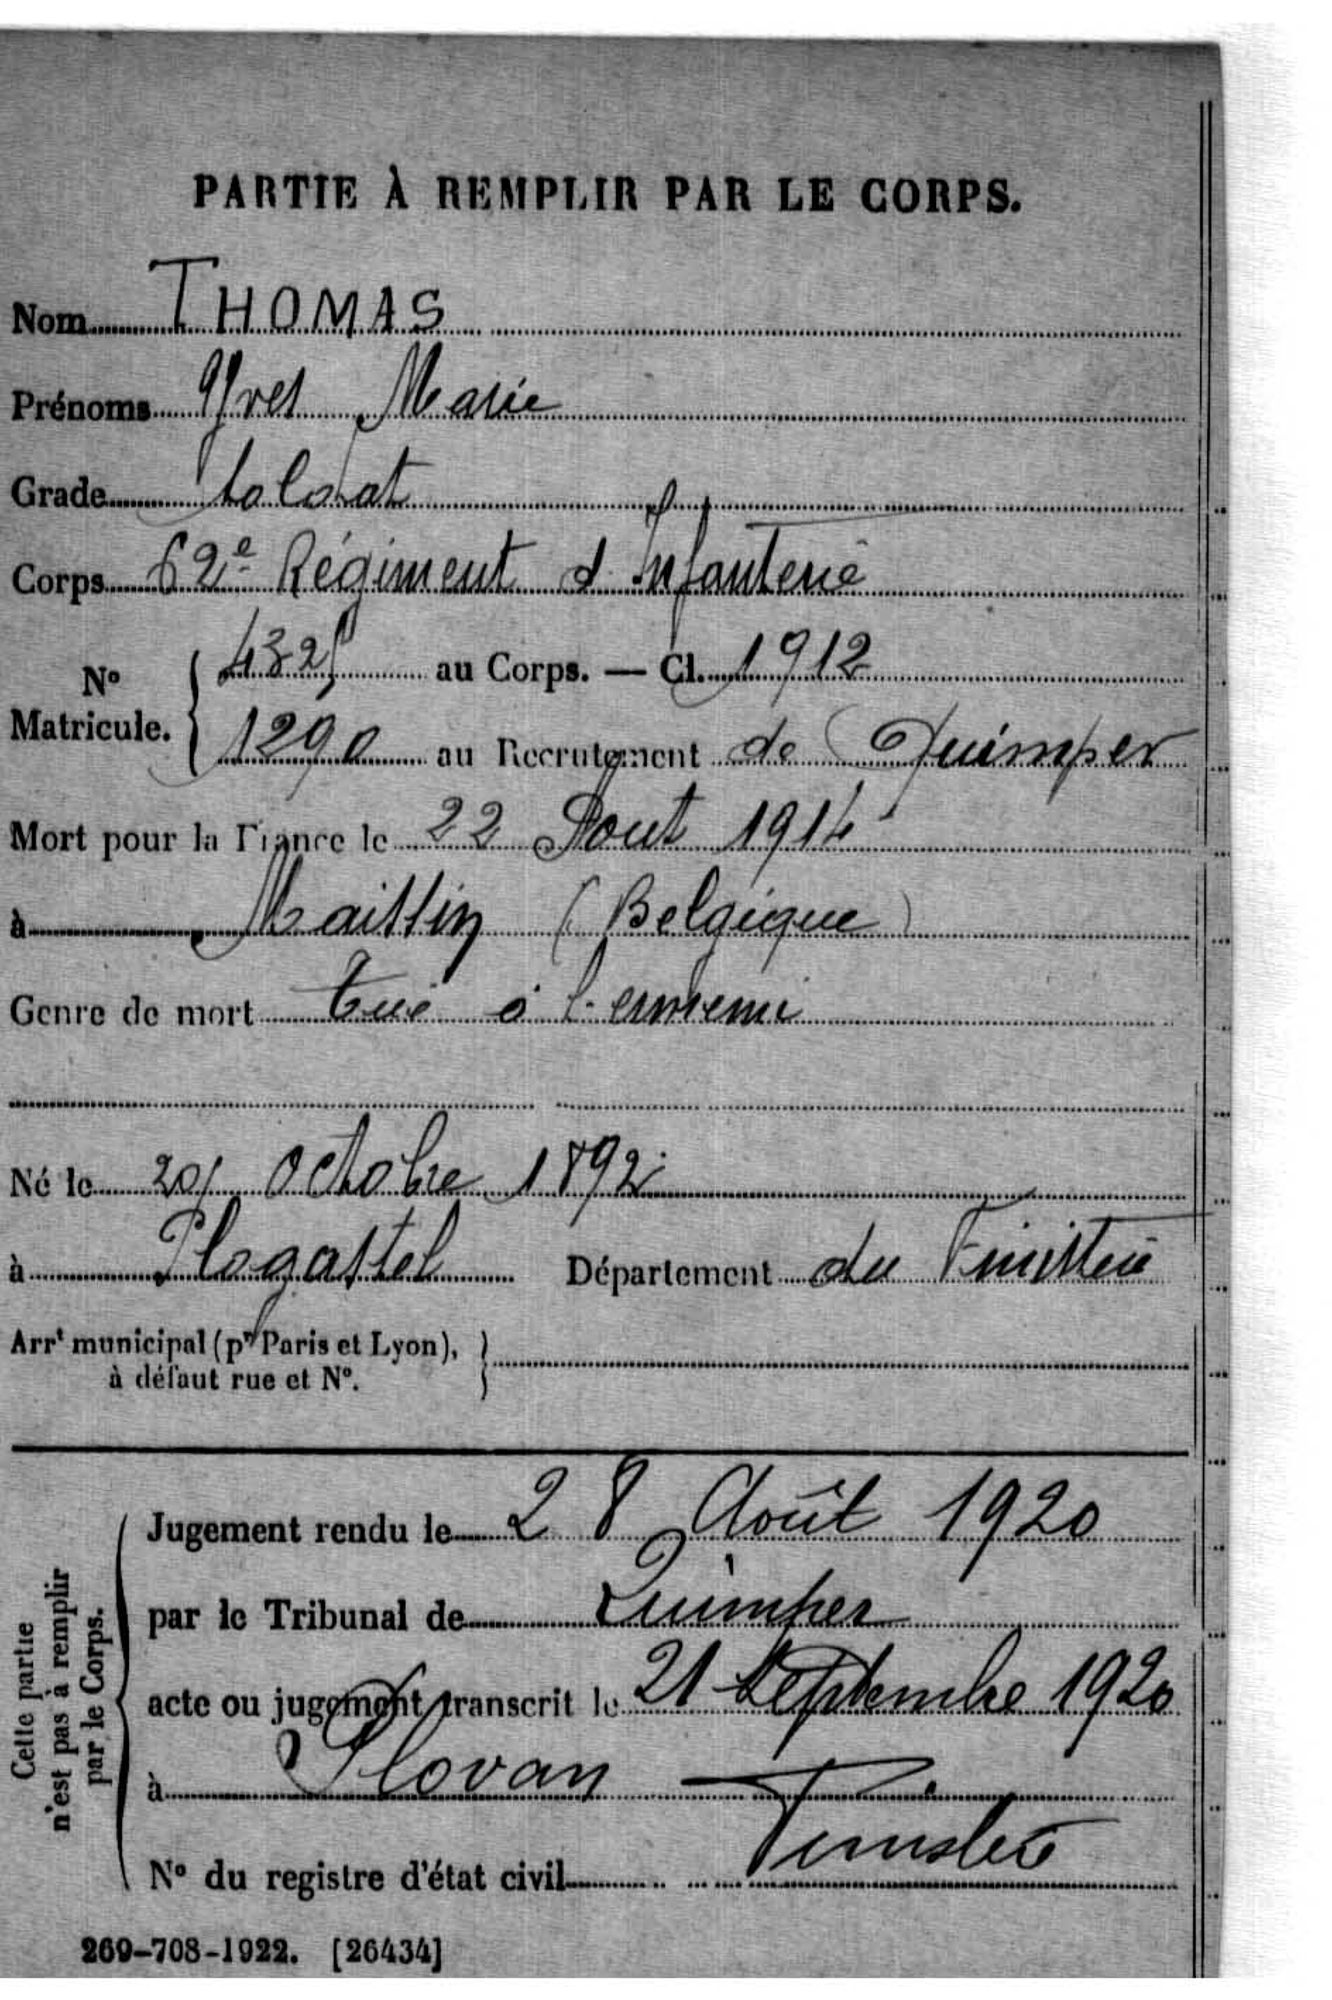 PARTIE À REMPLIR PAR LE CORPS.
Nom THOMAS
Prénoms Yves Marie
Grade soldat
Corps 62e Régiment d'Infanterie
No Matricule. { 4325 au Corps. — Cl. 1912
1290 au Recrutement de Quimper
Mort pour la France le 22 Aout 1914
à Maissin (Belgique)
Genre de mort tué à l'ennemi
Né le 20 octobre 1892
à Plogastel Département du Finistère
Arrt municipal (pr Paris et Lyon),
à défaut rue et No.
Cette partie
n'est pas à remplir
par le Corps.
Jugement rendu le 28 Août 1920
par le Tribunal de Quimper
acte ou jugement transcrit le 21 Septembre 1920
à Plovan Finistère
No du registre d'état civil
269-708-1922. [26434]